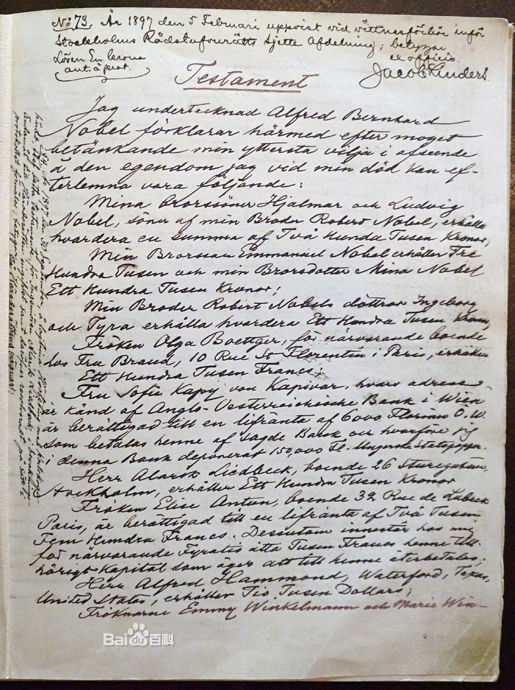 No 73. År 1897 den 5 Februari uppvist vid vittnesförhör inför
Stockholms Rådstufvurätts Sjette Afdelning; betygar
Lösen En krona
ex officio.
Testament
Jag undertecknad Alfred Bernhard
Nobel förklarar härmed efter moget
betänkande min yttersta vilja i afseende
å den egendom jag vid min död kan ef-
terlemna vara följande:
Mina Brorsöner Hjalmar och Ludvig
Nobel, söner af min Broder Robert Nobel, erhålla
hvardera en summa af Två Hundra Tusen Kronor;
Min Brorson Emmanuel Nobel erhåller Tre
Hundra Tusen och min Brorsdotter Mina Nobel
Ett Hundra Tusen Kronor;
Min Broder Robert Nobels döttrar Ingeborg
och Tyra erhålla hvardera Ett Hundra Tusen Kronor
Fröken Olga Boettger, för närvarande boende
hos Fru Brand, 10 Rue St Florentin i Paris, erhåller
Ett Hundra Tusen Francs;
Fru Sofie Kapy von Kapivar, hvars adress
är känd af Anglo-Oesterreichische Bank i Wien
är berättigad till en lifränta af 6000 Florins Ö.W.
som betalas henne af sagde Bank och hvarföre jag
i denna Bank deponerat 150,000 Fl. i Ungerska
Herr Alarik Liedbeck, boende 26 Sturegatan,
Stockholm, erhåller Ett Hundra Tusen Kronor
Fröken Elise Antun, boende 32 Rue de Lubeck
Paris, är berättigad till en lifränta af Två Tusen
Fem Hundra Francs. Dessutom innestår hos mig
för närvarande Fyratio åtta Tusen Francs henne till-
hörigt kapital som äger att till henne återbetalas;
Herr Alfred Hammond, Waterford, Texas,
United States, erhåller Tio Tusen Dollars;
Fröknarne Emmy Winkelmann och Marie Win-
Bai du 百科